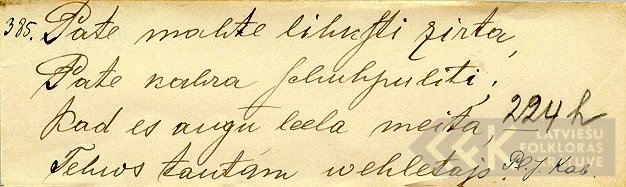 385. Pate mahte lihksti zirta,
Pate kahra schuhpuliti;
Kad es augu leela meita, 224 h
Tehws tautam wehletajs. Pl. J. Kab.
LATVIEŠU
FOLKLORAS
KRĀTUVE